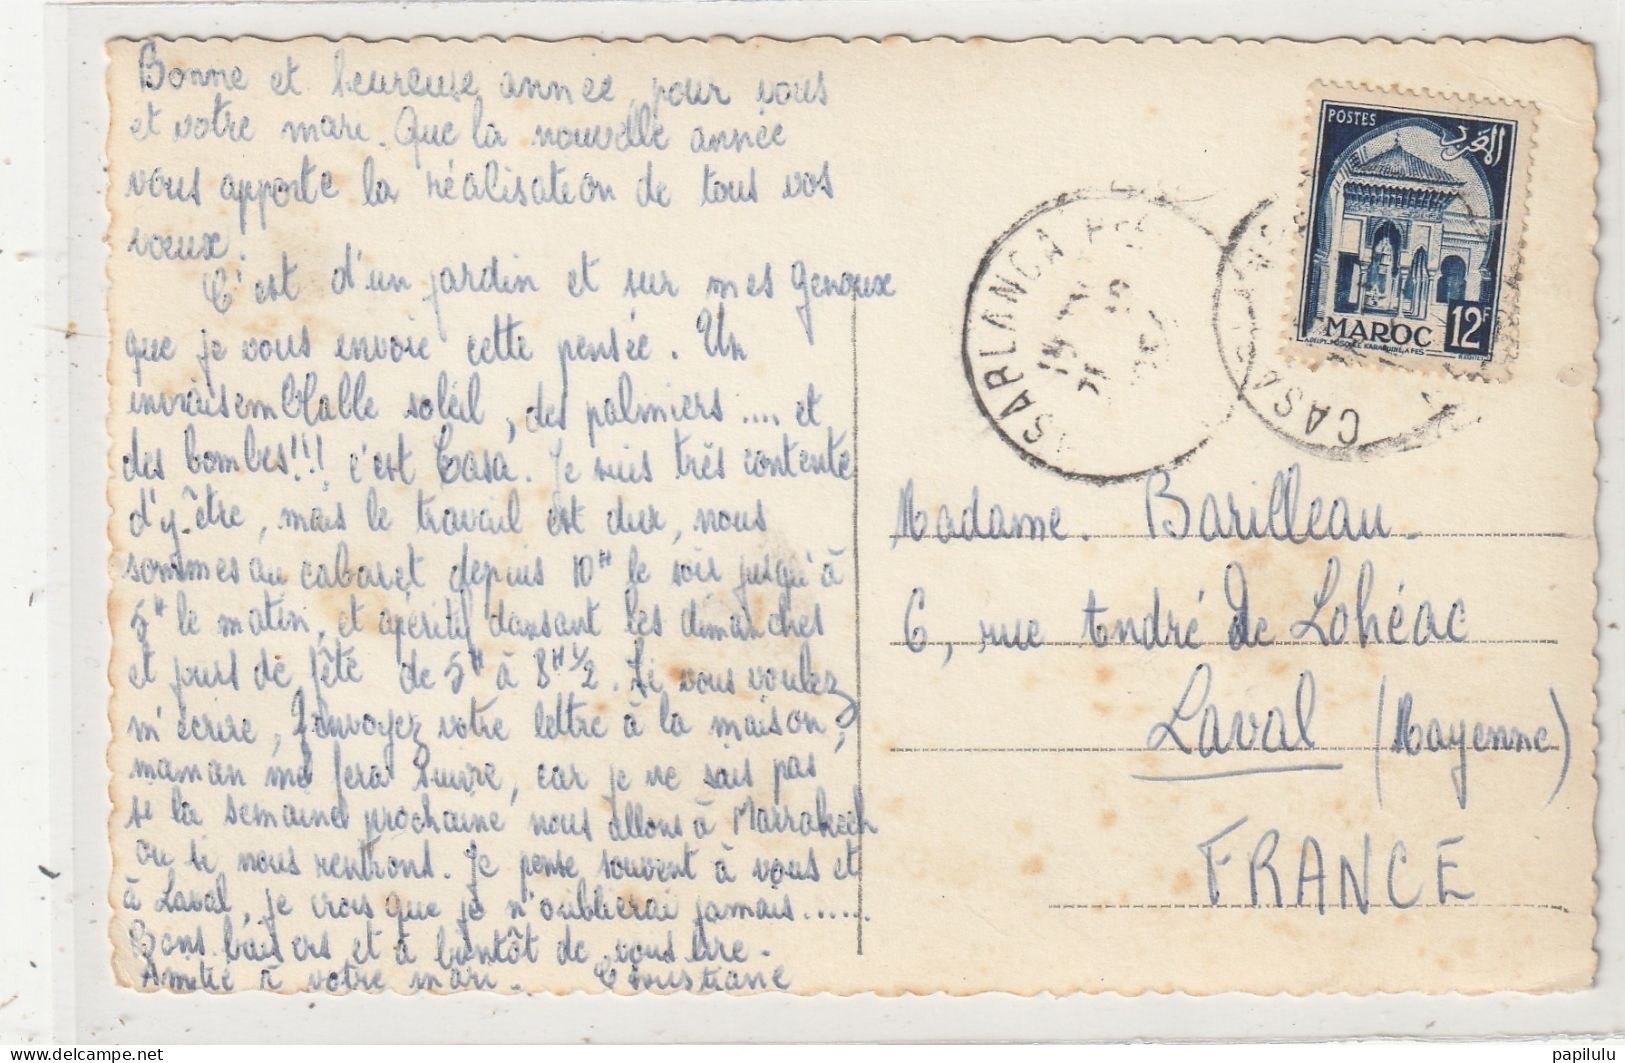 Bonne et heureuse année pour vous
et votre mari. Que la nouvelle année
vous apporte la réalisation de tous vos
voeux.
C'est d'un jardin et sur mes genoux
que je vous envoie cette pensée. Un
invraisemblable soleil, des palmiers .... et
des bombes!!! c'est Casa. Je suis très contente
d'y-être, mais le travail est dur, nous
sommes au cabaret depuis 10H le soir jusqu'à
5H le matin, et apéritif dansant les dimanches
et jours de fête de 5H à 8H 1/2. Si vous voulez
m'écrire, envoyez votre lettre à la maison,
maman me fera suivre, car je ne sais pas
si la semaine prochaine nous allons à Marrakech
ou si nous rentrons. Je pense souvent à vous et
à Laval, je crois que je n'oublierai jamais......
Bons baisers et à bientôt de vous lire.
Amitié à votre mari. Christiane
POSTES
المغرب
MAROC
12F
CASABLANCA
CASA
Madame. Barilleau.
6, rue André de Lohéac
Laval (Mayenne)
FRANCE
delcampe.net
papilulu